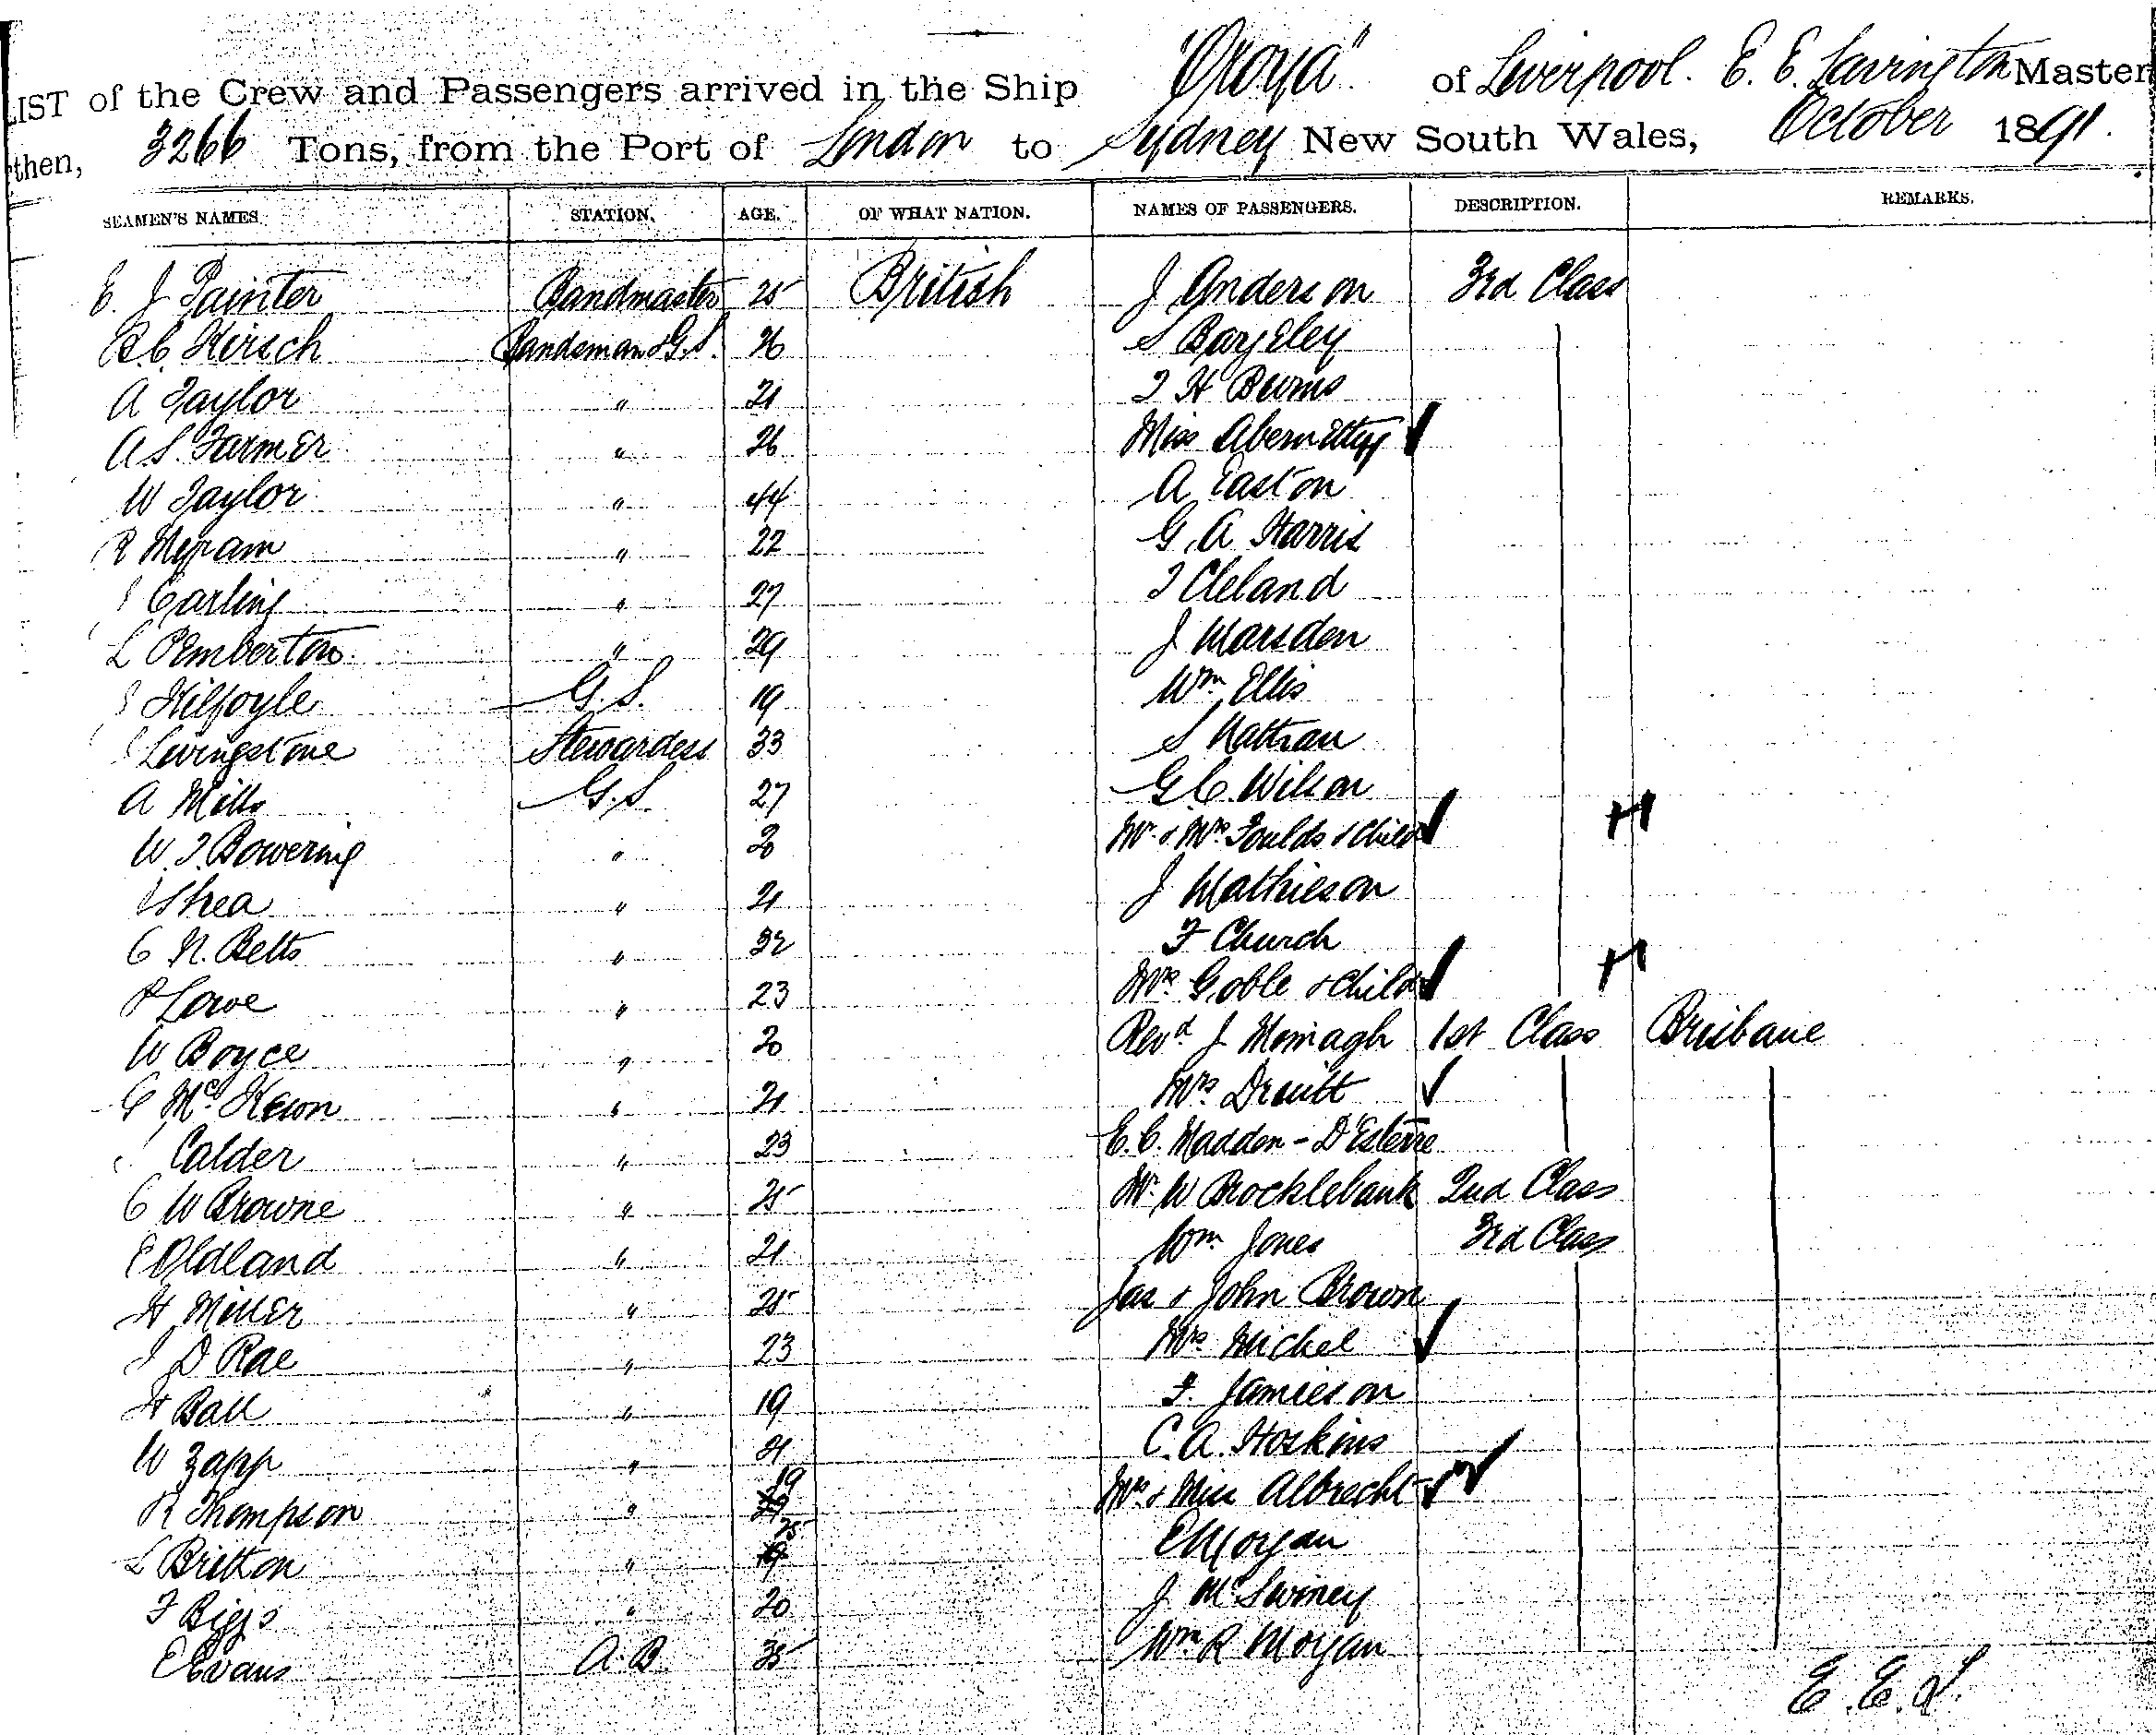 LIST of the Crew and Passengers arrived in the Ship "Oroya" of Liverpool. E. E. Lavington Master
then, 3266 Tons, from the Port of London to Sydney New South Wales, October 1891.
SEAMEN'S NAMES. STATION. AGE. OF WHAT NATION. NAMES OF PASSENGERS. DESCRIPTION. REMARKS.
E. J Painter Bandmaster 25 British J Anderson 3rd Class
Kirsch Bandsman & G.S. 26 S Bageley
A Taylor " 21 T H Burns
A.S. Farmer " 26 Miss Abernethy
W Taylor " 44 A Easton
R Myram " 22 G. A Harris
Carling " 27 T Cleland
L Pemberton " 29 J Marsden
Kilfoyle G.S. 19 Wm Ellis
Livingstone Stewardess 33 S Nathan
A Mills G.S. 27 G C. Wilson
W. T. Bowering " 20 Mr & Mrs Foulds & Child H
Shea " 21 J Mathieson
C N. Betts " 32 F Church
P Lowe " 23 Mrs Goble & Child H
W Boyce " 20 Revd J Monagh 1st Class Brisbane
C McKeon " 21 Mrs Druitt
Calder " 23 E. C. Madden - D'Esterre
C W Browne " 25 Mr W Brocklebank 2nd Class
E Oldland " 21 Wm Jones 3rd Class
H Miller " 25 Jas & John Brown
J D Rae " 23 Mrs Michel
H Ball " 19 F. Jamieson
W Zapp " 21 C. A. Hoskins
R Thompson " 19 Mrs & Miss Albrecht
L Britton " 25 E Morgan
F Biggs " 20 J McSwiney
E Evans A.B. 35 Wm R Morgan
E. E. L.